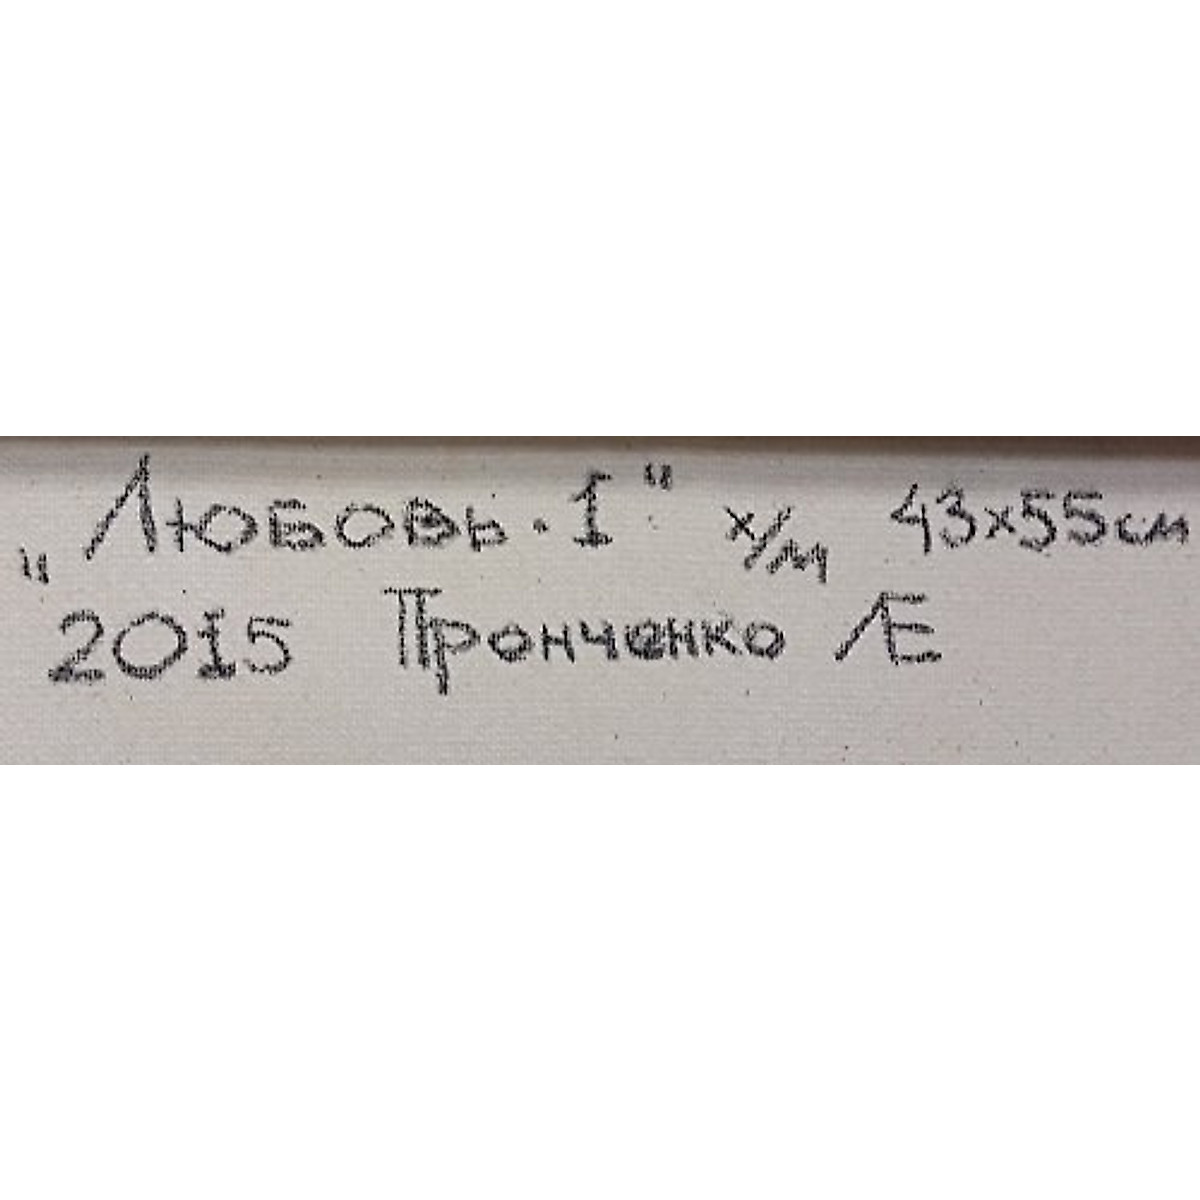 „Любовь·I" х/м 43х55см
2015 Пронченко ЛЕ